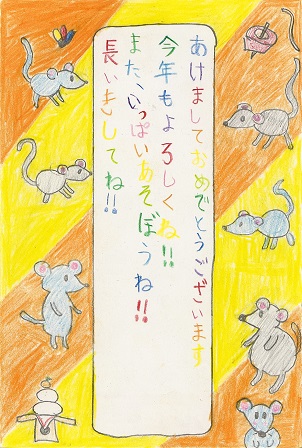 あけましておめでとうございます
今年もよろしくね!!
また、いっぱいあそぼうね!!
長いきしてね!!